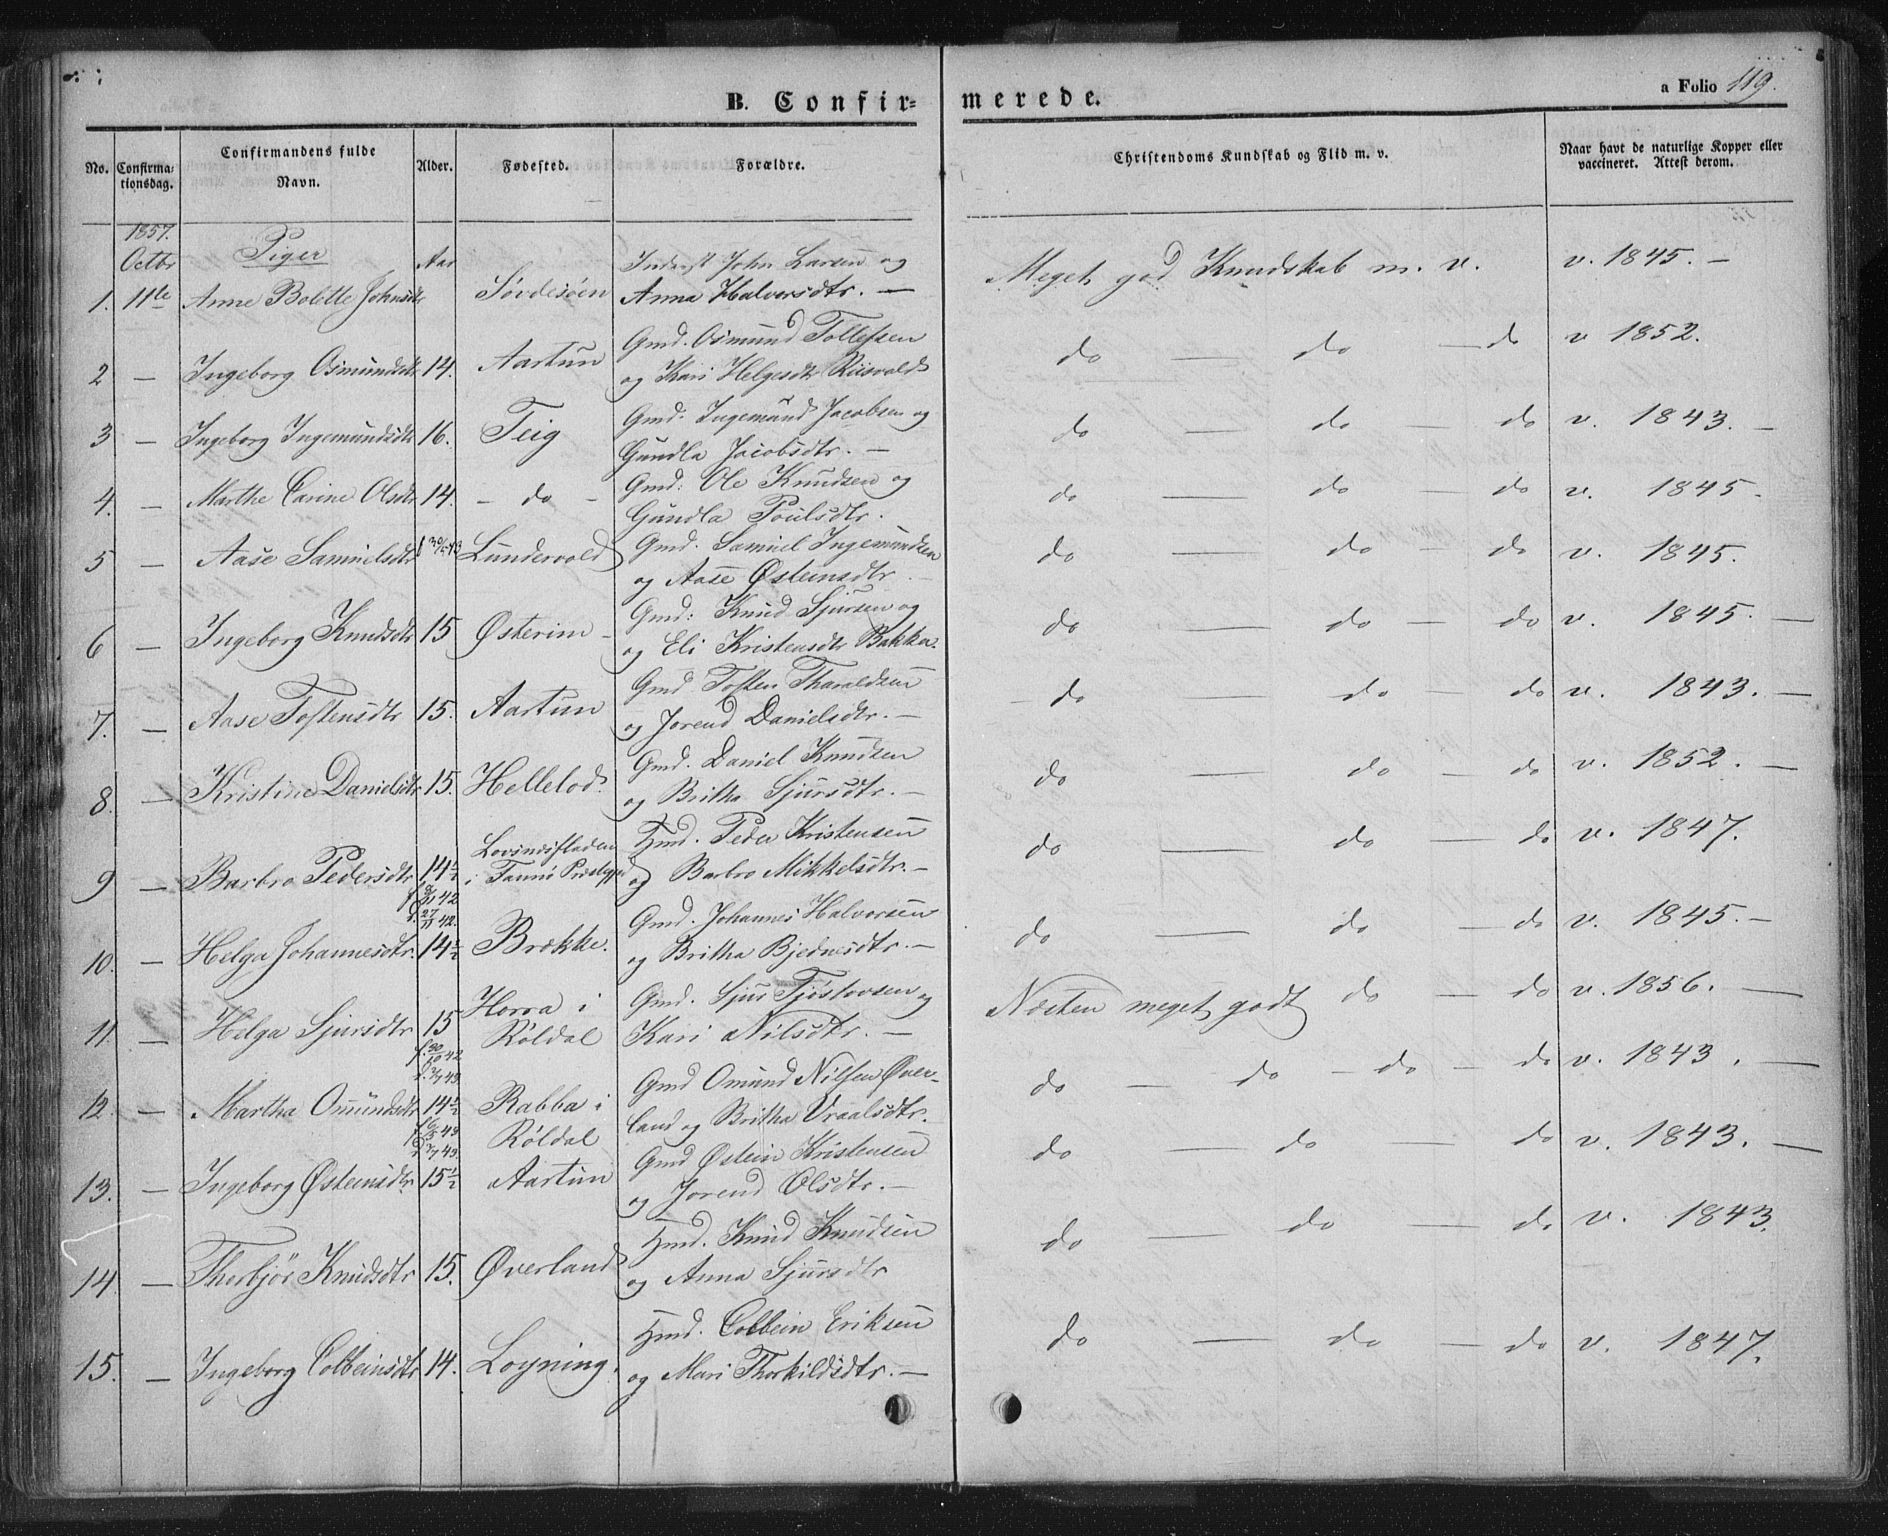 B. Confir=
merede.
a Folio 119.
No.
Confirma-
tionsdag.
Confirmandens fulde
Navn.
Alder.
Fødested.
Forældre.
Christendoms Kundskab og Flid m. v.
Naar havt de naturlige Kopper eller
vaccineret. Attest derom.
1857.
Octbr Piger Aar Inderst John Larsen og
1. 11te Anne Bolette Johnsdtr Anna Halvorsdtr. — Meget god Kundskab m. v. v. 1845. —
Gmd. Osmund Tollefsen
2 — Ingeborg Osmundsdtr 14. Aartun og Kari Helgesdtr do — do — do v 1852.
Gmd. Ingemund Jacobsen og
3 — Ingeborg Ingemundsdtr 16. Teig Gundla Jacobsdtr. — do — do — do v. 1843. —
Gmd: Ole Knudsen og
4. — Marthe Carine Olsdtr 14. — do — Gundla Poulsdtr. do — do — do v. 1845.
Gmd. Samuel Ingemundsen
5 — Aase Samuelsdtr Lundervold og Aase Østeinsdtr. — do — do — do v. 1845.
Gmd: Knud Sjursen og
6 — Ingeborg Knudsdtr 15 Østerim — og Eli Kristensdtr Bakka. do — do — do v. 1845. —
Gmd Tosten Tharaldsen
7. — Aase Tostensdtr 15. Aartun og Jorend Danielsdtr. — do — do — do v. 1843. —
Gmd. Daniel Knudsen
8. — Kristine Danielsdtr 15. og Britha Sjursdtr. — do — do — do v. 1852. —
Hmd. Peder Kristensen
9 — Barbro Pedersdtr 14½ og Barbro Mikkelsdtr. — do — do — do v. 1847.
Gmd. Johannes Halvorsen
10. — Helga Johannesdtr. 14½ Brekke. og Britha Bjednesdtr. — do — do — do v. 1845. —
Horra i Gmd. Sjur Tjøstovsen og
11. — Helga Sjursdtr 15 Røldal Kari Nilsdtr. — Næsten meget godt do — do v. 1856. —
f. 30/10 42
Gmd Omund Nilsen Øver-
12. — Martha Omundsdtr 14½ Rabba i land og Britha Vraalsdtr. do — do — do — do v. 1843. —
Røldal
Gmd Østein Kristensen
13. — Ingeborg Østeinsdtr. 15½ Aartun og Jorend Olsdtr. — do — do — do v. 1843. —
Hmd. Knud Knudsen
14. — Thorbjør Knudsdtr 15. Øverland og Anna Sjursdtr do — do — do v. 1843.
Hmd. Colbein Eriksen
15. — Ingeborg Colbeinsdtr 14. Loyning. og Mari Thorkildsdtr. — do — do — do v. 1847.